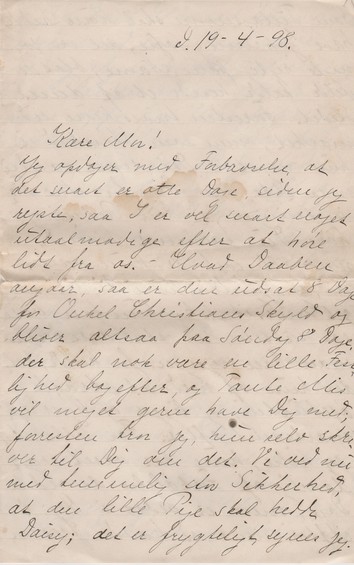 J. 19-4-98.
Kære Mor!
Jeg opdager med Forbavselse, at
det snart er otte Dage siden jeg
rejste, saa I er vel snart noget
utaalmodige efter at høre
lidt fra os. - Hvad Daaben
angaar, saa er den udsat 8 Dag
for Onkel Christians Skyld og
bliver altsaa paa Søndag 8 Dage,
der skal nok være en lille Fest
lighed bagefter, og Tante Mis
vil meget gerne have Dig med;
forresten tror jeg, hun selv skri
ver til Dig om det. Vi ved nu
med temmelig stor Sikkerhed,
at den lille Pige skal hedde
Daisy; det er frygteligt, synes jeg.